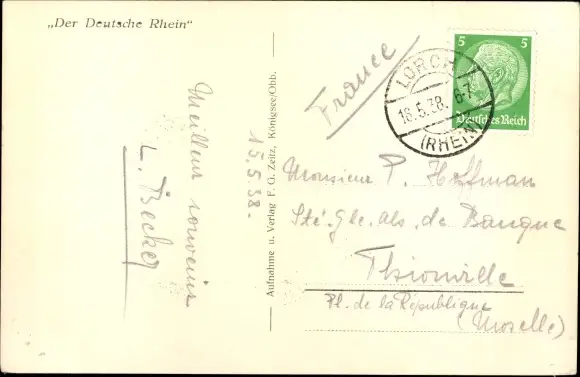 „Der Deutsche Rhein"
Meilleur souvenir
L. Becker
15.5.38.
Aufnahme u. Verlag F. G. Zeitz, Königsee/Obb.
France
LORCH
16.5.38. 6-7
(RHEIN)
5 5
Deutsches Reich
Monsieur P. Hoffman
Sté. Gle. als. de Banque
Thionville
Pl. de la République
(Moselle)